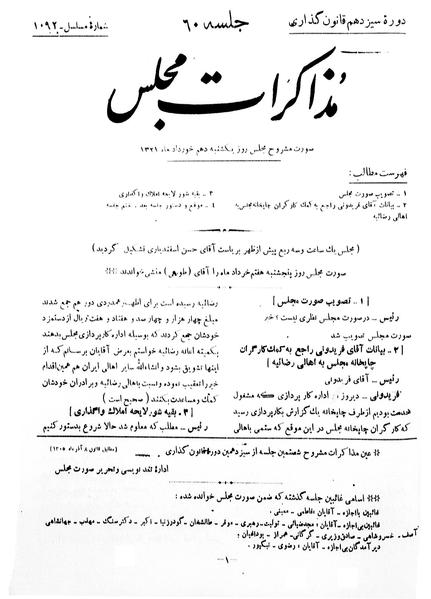 دورهٔ سیزدهم قانون‌گذاری
جلسه ۶۰
شمارهٔ مسلسل - ۱۰۹۲
مذاکرات مجلس
صورت مشروح مجلس روز یکشنبه دهم خورداد ماه ۱۳۲۱
فهرست مطالب:
۱ - تصویب صورت مجلس
۲ - بیانات آقای فریدونی راجع به کمک کارگران چاپخانه مجلس به
اهالی رضائیه
۳ - بقیه شور لایحه املاک واگذاری
۴ - موقع و دستور جلسه بعد - ختم جلسه
(مجلس یک ساعت و سه ربع پیش از ظهر بریاست آقای حسن اسفندیاری تشکیل گردید)
صورت مجلس روز پنجشنبه هفتم خرداد ماه را آقای (طوسی) منشی خواندند ***
[ ۱ - تصویب صورت مجلس ]
رئیس - در صورت مجلس نظری نیست؟ خیر
صورت مجلس تصویب شد
[ ۲ - بیانات آقای فریدونی راجع به کمک کارگران
چاپخانه مجلس به اهالی رضائیه ]
رئیس - آقای فریدونی
فریدونی - دیروز در اداره کار پردازی که مشغول
خدمت بودیم از طرف چاپخانه یک گزارش بکارپردازی رسید
که کارگران چاپخانه مجلس در این موقع که ستمی باهالی
رضائیه رسیده است برای اظهار همدردی دور هم جمع شدند
مبلغ چهار هزار و چهار صد و هفتاد و هفت ریال از دستمزد
خودشان جمع کردند که بوسیله اداره کارپردازی مجلس بدهند
بکمیته اعانه رضائیه خواستم بعرض آقایان برسانم که از
اینها تشویق بشود و انشاءالله سایر اهالی ایران هم همین اقدام
خیر را تعقیب نموده و نسبت باهالی رضائیه و برادران خودشان
کمک و مساعدت بکنند (صحیح است)
[ ۳ - بقیه شور لایحه املاک واگذاری ]
رئیس - مطلب که معلوم شد حالا شروع بدستور کنیم
عین مذاکرات مشروح شصتمین جلسه از سیزدهمین دوره قانون گذاری
(مطابق قانون ۸ آذر ماه ۱۳۰۵)
ادارهٔ تند نویسی و تحریر صورت مجلس
*** اسامی غائبین جلسه گذشته که ضمن صورت مجلس خوانده شده:
غائبین با اجازه - آقایان: فاطمی - معینی.
غائبین بی اجازه - آقایان: مجد ضیائی - تولیت - رهبری - موقر - طالشخان - گودرزنیا - اکبر - دکتر سنگ - مهذب - جهانشاهی
آصف - خسروشاهی - صادق وزیری - گرگانی - همراز - بوداغیان؛
دیر آمدگان بی اجازه - آقایان: رضوی - نیکپور.
-۱-